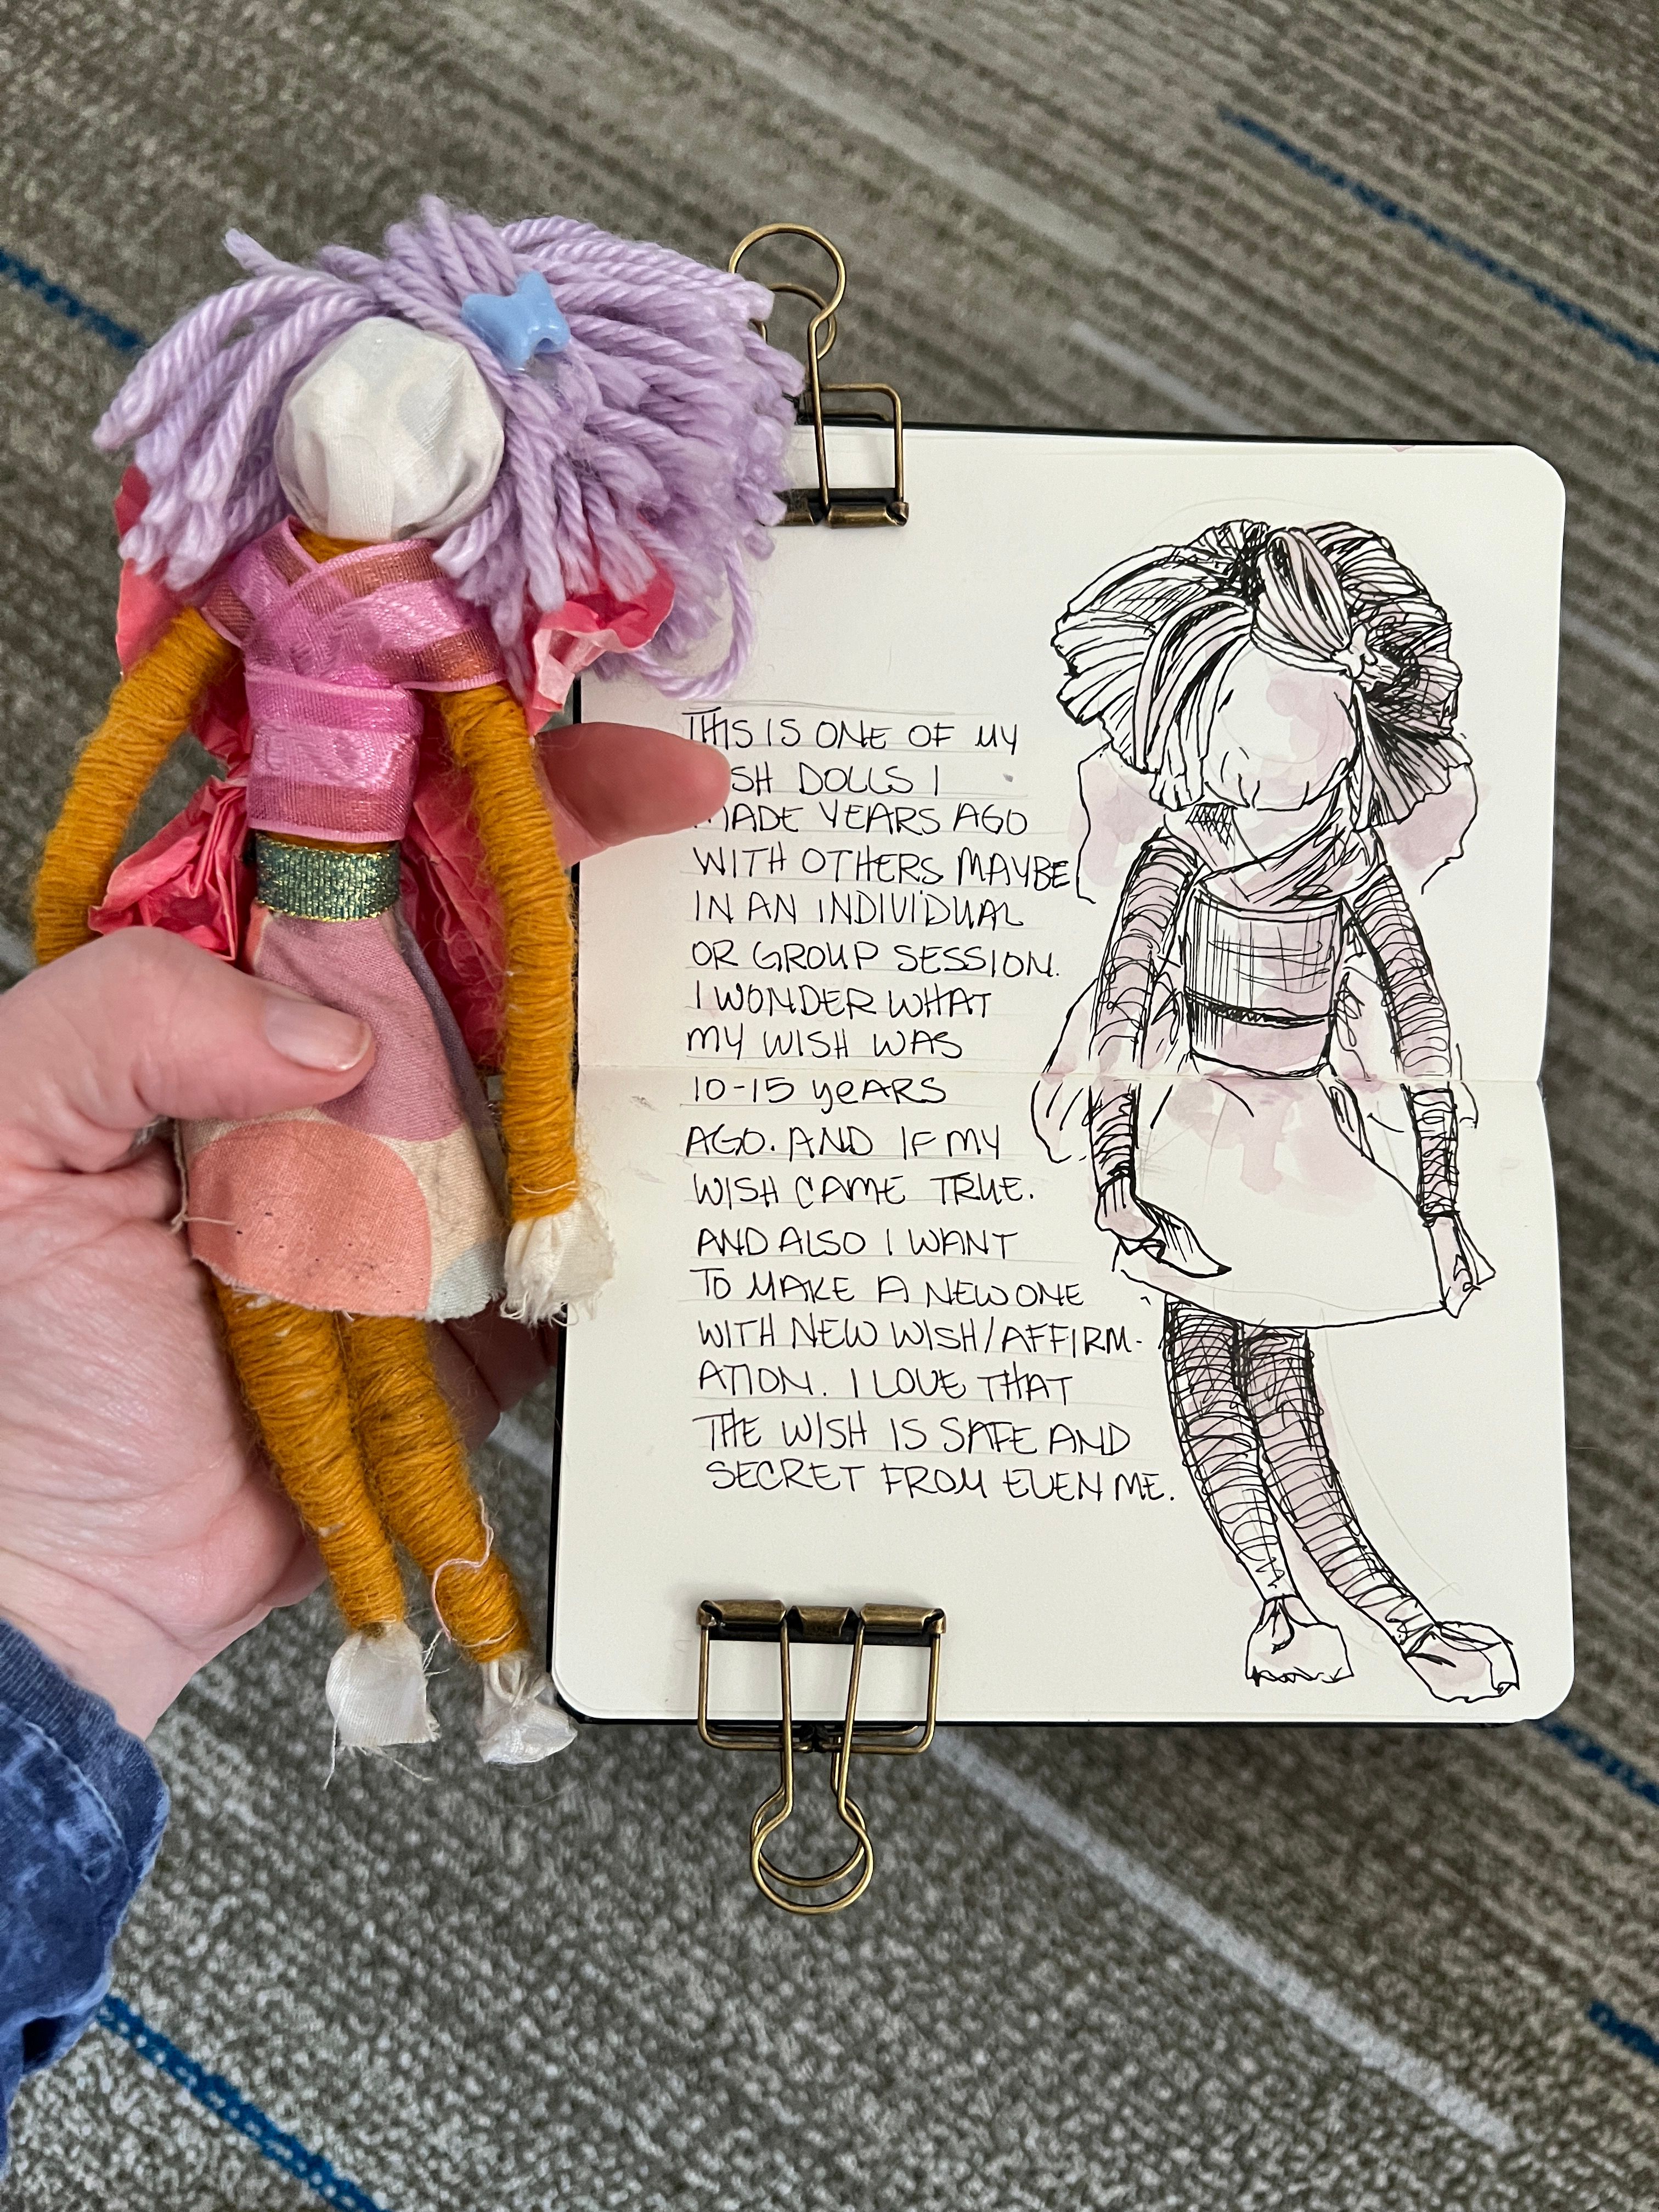 THIS IS ONE OF MY
SH DOLLS I
MADE YEARS AGO
WITH OTHERS MAYBE
IN AN INDIVIDUAL
OR GROUP SESSION.
I WONDER WHAT
MY WISH WAS
10-15 YEARS
AGO. AND IF MY
WISH CAME TRUE.
AND ALSO I WANT
TO MAKE A NEW ONE
WITH NEW WISH/AFFIRM-
ATION. I LOVE THAT
THE WISH IS SAFE AND
SECRET FROM EVEN ME.